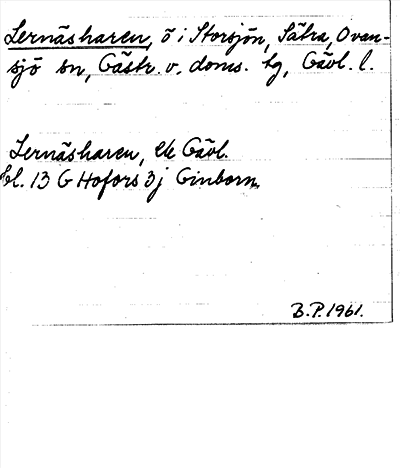 Lernäsharen, ö i Storsjön, Sätra, Ovan-
sjö sn, Gästr. v. doms. tg, Gävl. l.
Lernäsharen, ek Gävl.
bl. 13 G Hofors 3j Ginborn.
B.P. 1961.